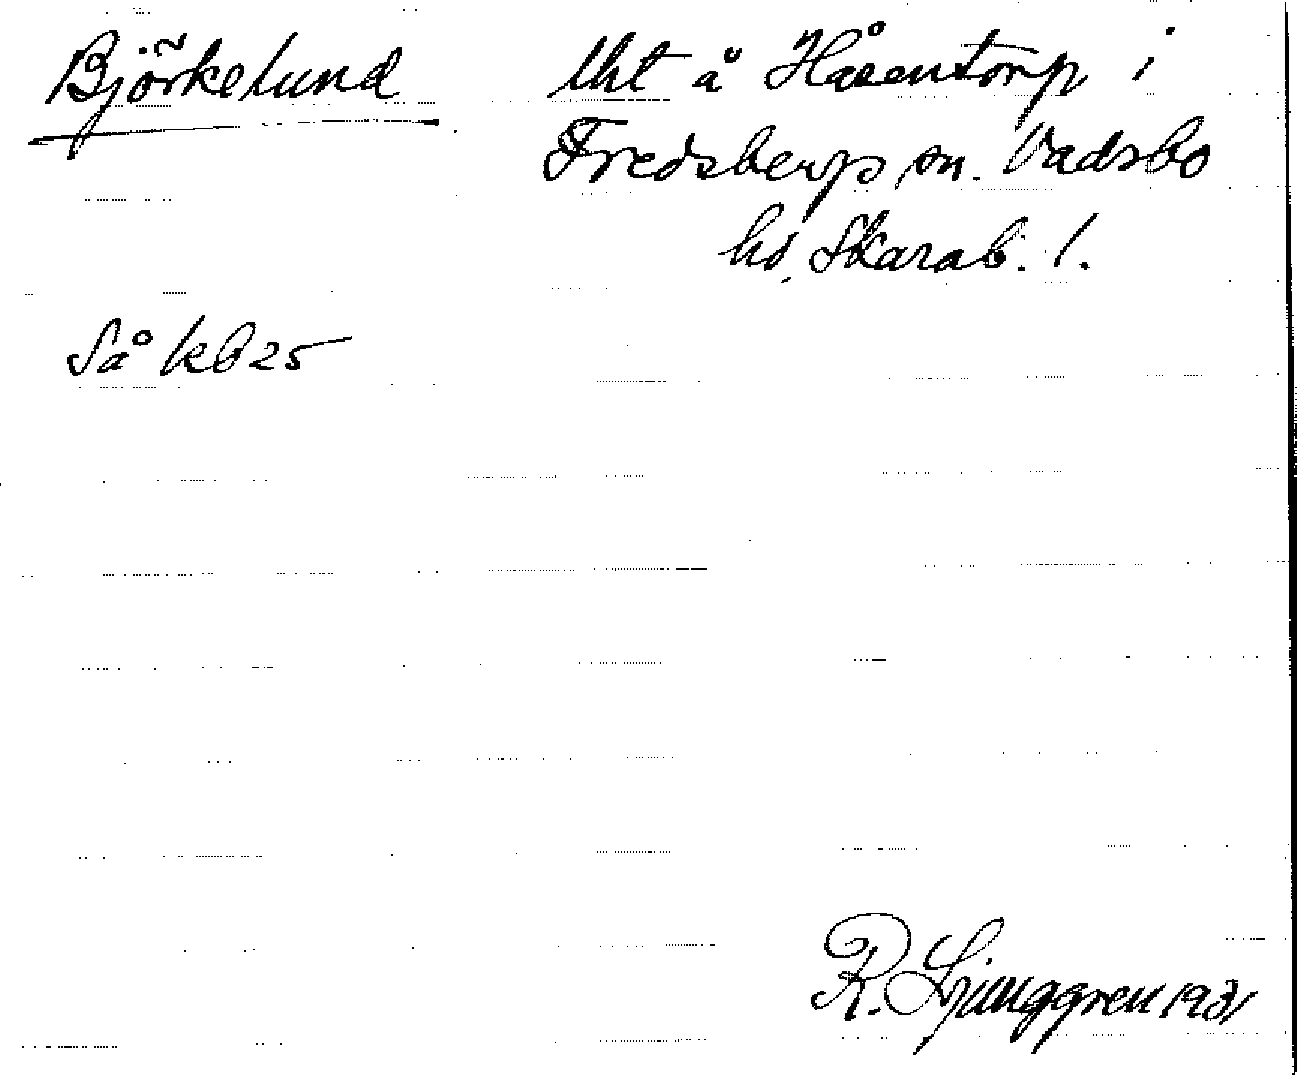 Björkelund
Uht å Håsentorp i
Fredsbergs sn. Vadsbo
hd. Skarab. l.
Så kb 25
R. Ljunggren 1931